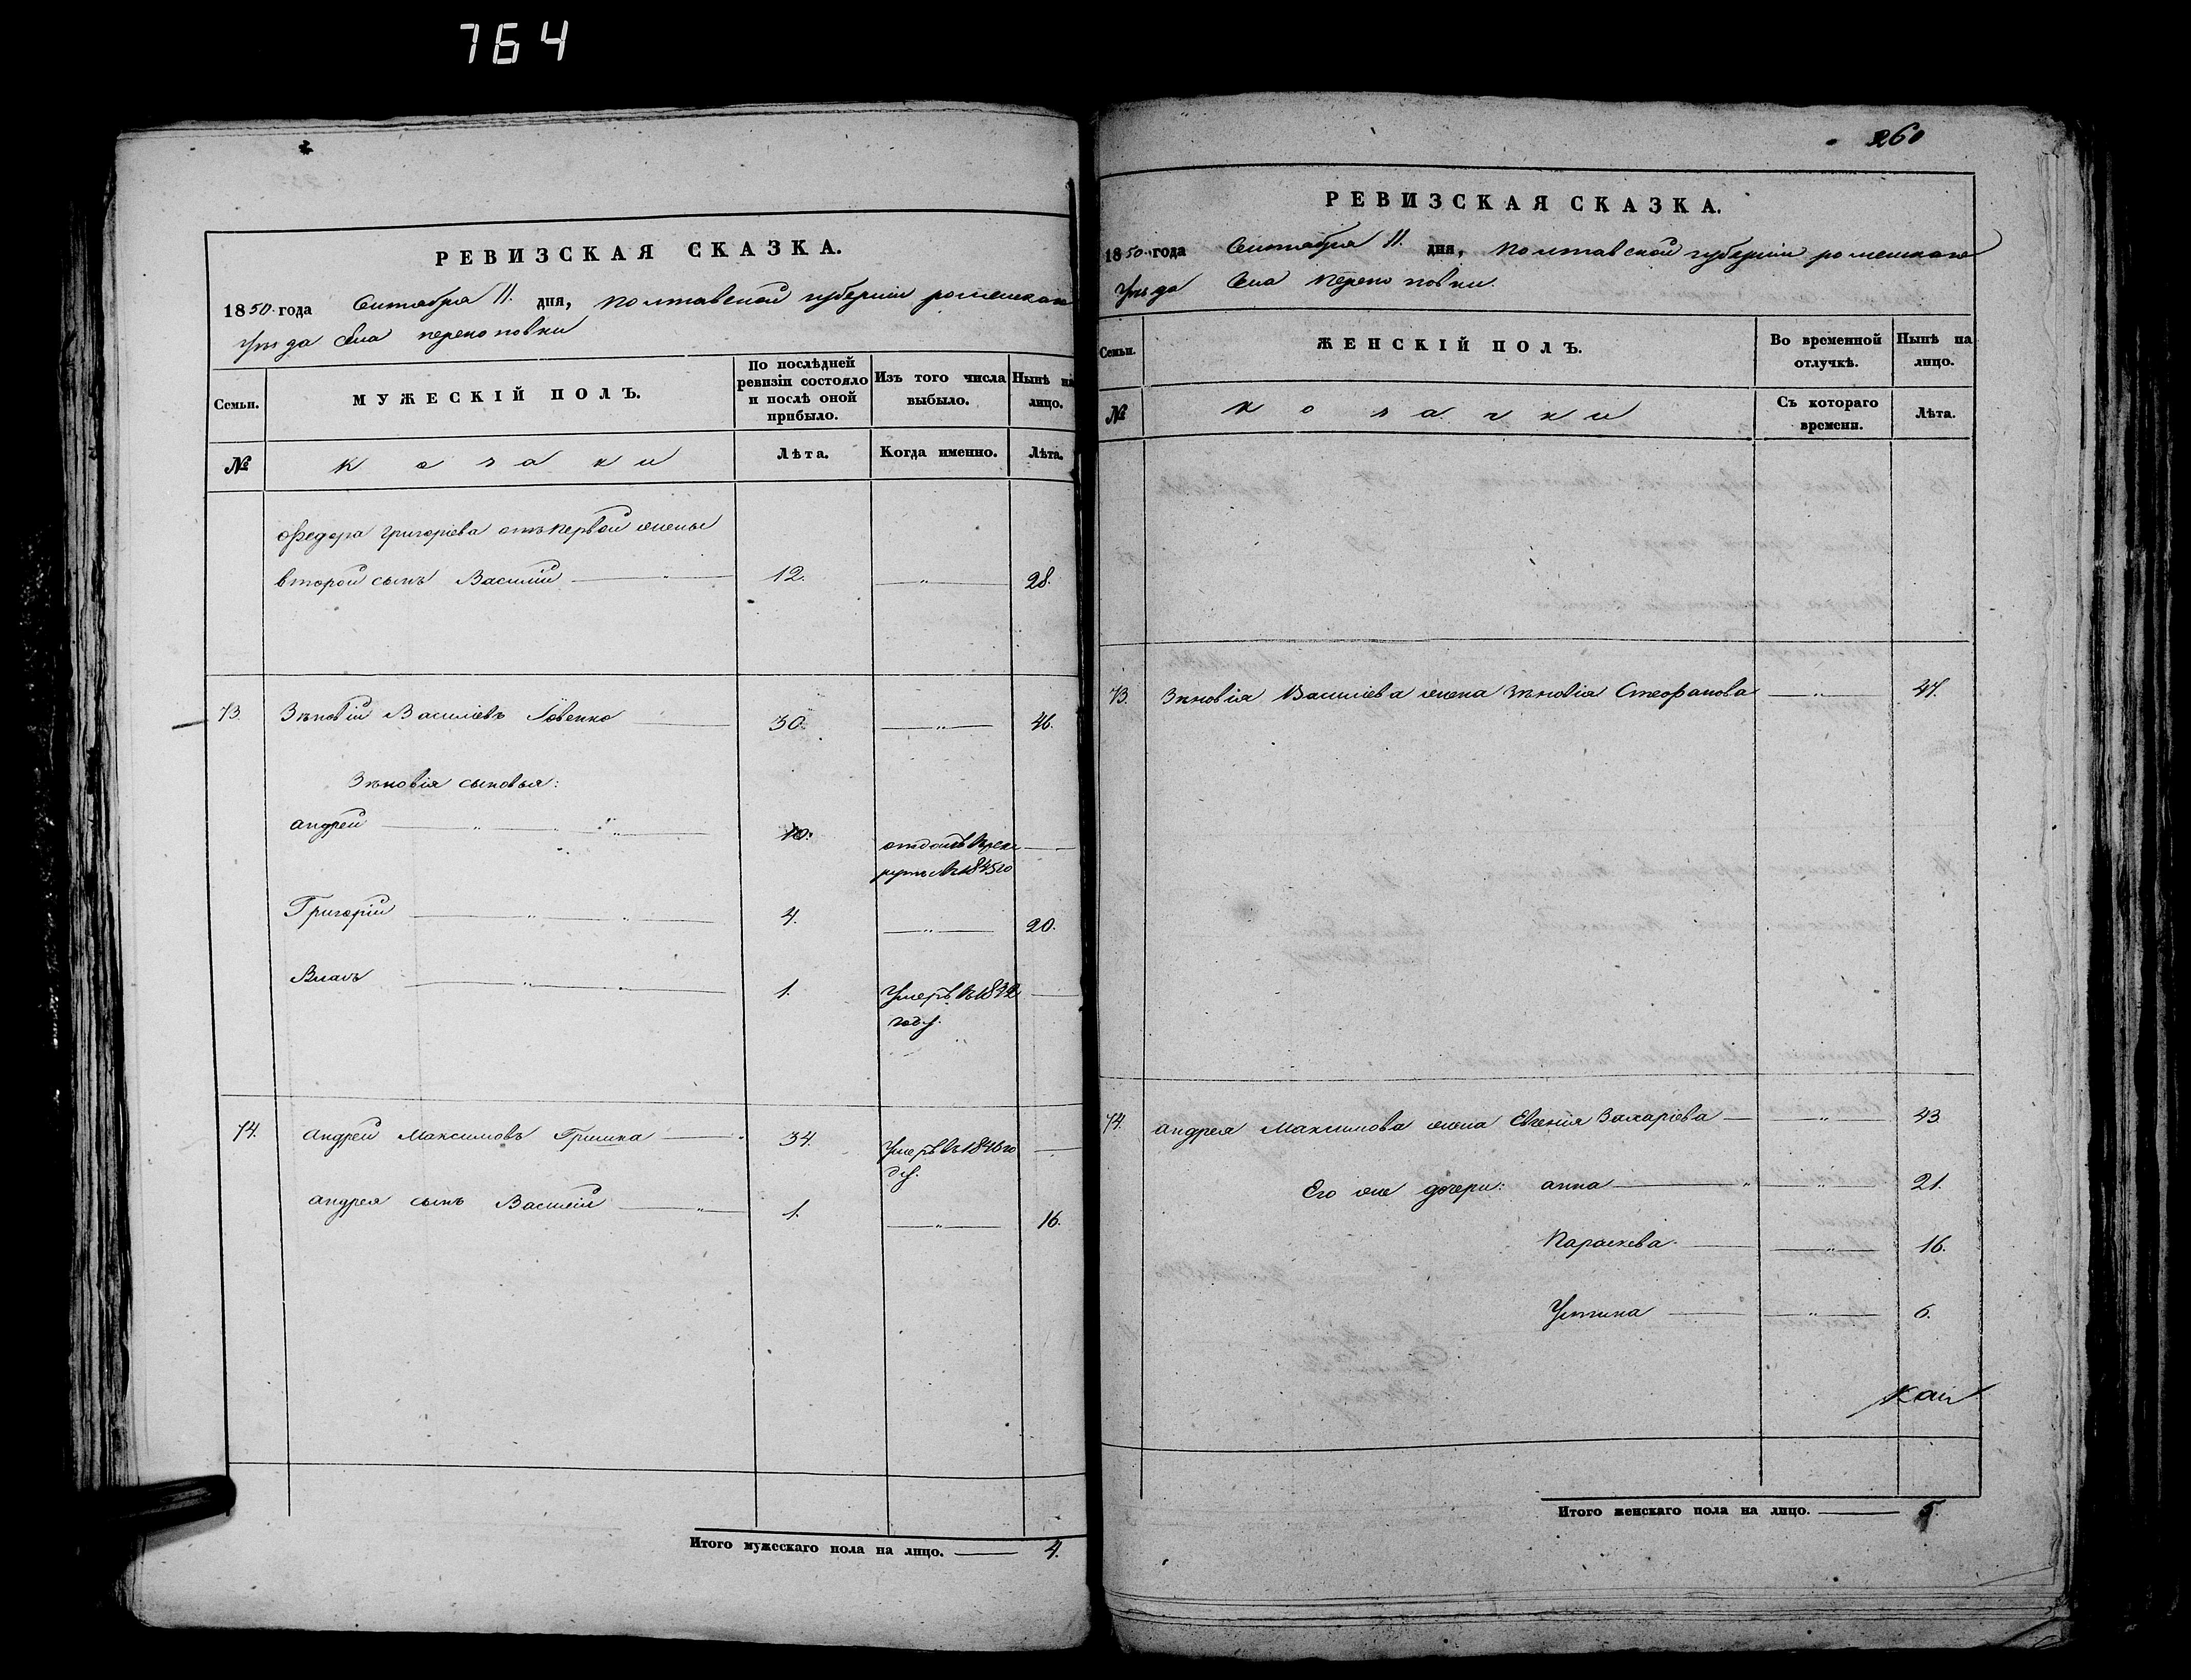 764
РЕВИЗСКАЯ СКАЗКА.
1850 года Сентября 11. дня, Полтавской губернии роменскаго
уезда села перекоповки
Семьи.
МУЖЕСКІЙ ПОЛЪ.
По послѣдней ревизіи состояло и послѣ оной прибыло.
Изъ того числа выбыло.
Нынѣ на лицо.
№
козаки
Лѣта.
Когда именно.
Лѣта.
Федора Григоріева отъ первой жены
второй сынъ Василій 12. 28.
73. Зѣновій Василіевъ 30. 46.
Зѣновія сыновья:
андрей 10. отданъ въ рек
руты въ 1845 го
Григорій 4. 20.
Власъ 1. Умеръ въ
году.
74. андрей Максимовъ Гришка 34. Умеръ въ 1846 го
ду.
андрея сынъ Василій 1. 16.
Итого мужескаго пола на лицо. 4.
260
РЕВИЗСКАЯ СКАЗКА.
1850 года Сентября 11. дня, Полтавской губерніи роменскаго
уезда Села перекоповки.
Семьи.
ЖЕНСКІЙ ПОЛЪ.
Во временной отлучкѣ.
Нынѣ на лицо.
№
козачки
Съ котораго времени.
Лѣта.
73. Зѣновія Василіева жена Зѣновія Стефанова 47.
74. андрея Максимова жена Евгенія Захаріева 43.
Его же дочери: анна 21.
Параскева 16.
Устина 6.
Итого женскаго пола на лицо. 5.